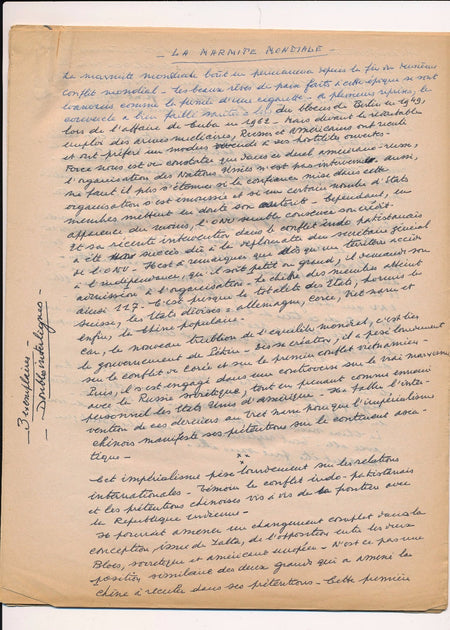 - LA MARMITE MONDIALE -
La marmite mondiale bout en permanence depuis la fin du deuxième
conflit mondial - Les beaux rêves de paix faits à cette époque se sont
évanouis comme la fumée d'une cigarette - à plusieurs reprises, le
couvercle a bien failli sauter : lors du blocus de Berlin en 1949,
lors de l'affaire de Cuba en 1962 - Mais devant le redoutable
emploi des armes nucléaires, Russes et américains ont reculé
et ont préféré un modus vivendi à des hostilités ouvertes -
Force nous est de constater que dans ce duel américano-russe,
l'organisation des Nations Unies n'est pas intervenue. aussi,
ne faut il plus s'étonner si la confiance mise dans cette
organisation s'est émoussée et si un certain nombre d'Etats
membres mettent en doute son autorité - Cependant, en
apparence du moins, l'ONU semble conserver son crédit -
Et sa récente intervention dans le conflit indo pakistanais
a été un succès dû à la diplomatie du secrétaire général
de l'ONU - Il est à remarquer que dès qu'un territoire accède
à l'indépendance, qu'il soit petit ou grand, il demande son
admission à l'organisation - Le chiffre des membres atteint
ainsi 117. C'est presque la totalité des Etats, hormis la
Suisse, les Etats divisés : allemagne, Corée, Viet nam et
enfin, la Chine populaire -
Car, le nouveau trublion de l'équilibre mondial, c'est bien
le gouvernement de Pékin - Dès sa création, il a pesé lourdement
sur le conflit de Corée et sur le premier conflit vietnamien -
Puis, il s'est engagé dans une controverse sur le vrai marxisme
avec la Russie soviétique, tout en prenant comme ennemi
personnel les Etats Unis d'amérique - Il a fallu l'inter-
vention de ces derniers au Viet nam pour que l'impérialisme
chinois manifeste ses prétentions sur le continent asia-
tique -
Cet impérialisme pèse lourdement sur les relations
internationales - Témoin le conflit indo-pakistanais
et les prétentions chinoises vis à vis de la frontière avec
la République indienne -
Il pourrait amener un changement complet dans la
conception, issue de Yalta, de l'opposition entre les deux
Blocs, soviétique et américano européen - N'est ce pas une
position similaire des deux grands qui a amené la
Chine à reculer dans ses prétentions - Cette première
- 3 exemplaires -
- Doubles interlignes -